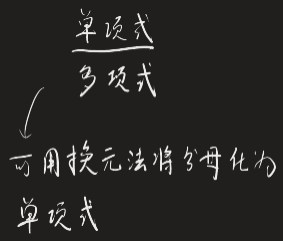 单项式
多项式
可用换元法将分母化为
单项式